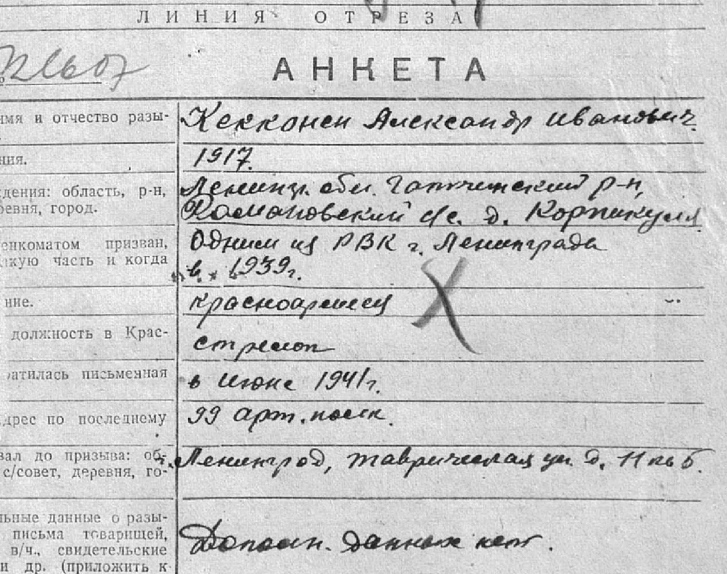 ЛИНИЯ ОТРЕЗА
АНКЕТА
имя и отчество разы- Кекконен Александр Иванович.
ния. 1917.
ждения: область, р-н, Ленингр. обл. Гатчинский р-н,
ревня, город. Романовский с/с. д. Корпикюля
енкоматом призван, Одним из РВК г. Ленинграда
акую часть и когда в 1939г.
ние. красноармеец
должность в Крас- стрелок
ратилась письменная в июне 1941г.
дрес по последнему 99 арт. полк.
вал до призыва: об-
с/совет, деревня, го- г. Ленинград, Таврическая ул. д. 11 кв 6.
льные данные о разы-
письма товарищей,
в/ч., свидетельские Дополн. данных нет.
и др. (приложить к